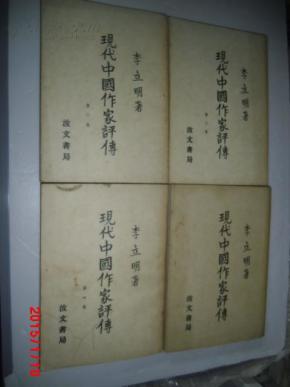 李立明著
現代中國作家評傳
波文書局
李立明著
現代中國作家評傳
波文書局
李立明著
現代中國作家評傳
第一集
波文書局
李立明著
現代中國作家評傳
波文書局
2015/1/10